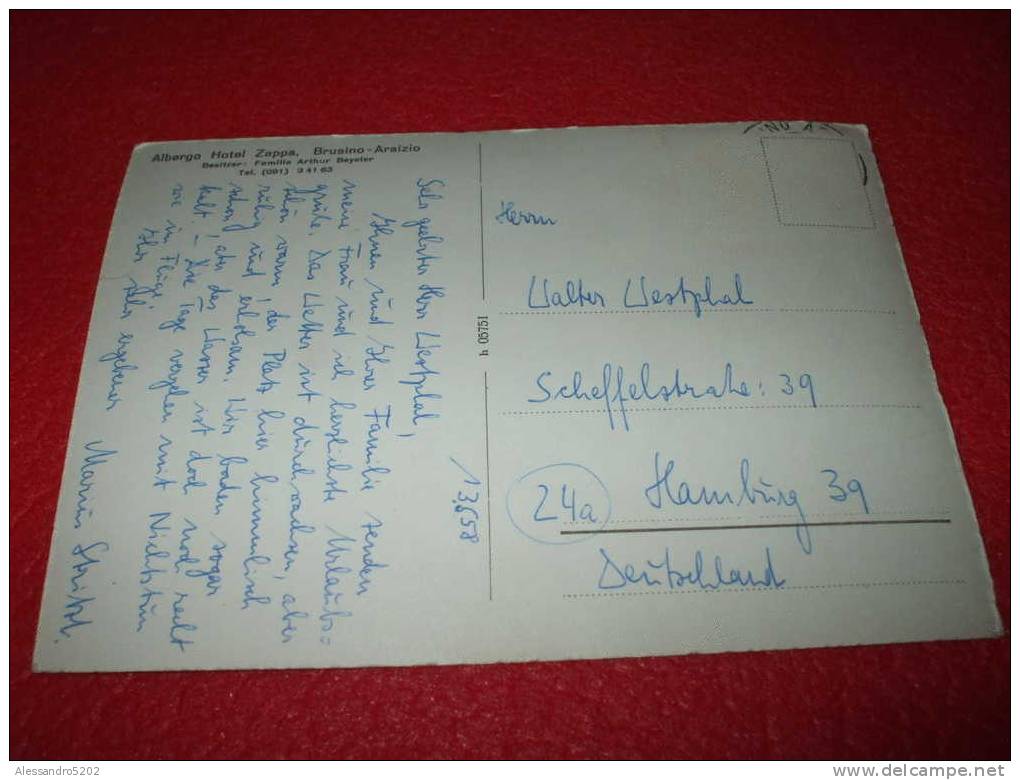 Albergo Hotel Zappa, Brusino-Arsizio
Besitzer: Familie Arthur Beyeler
Tel. (091) 3 41 63
13.6.58
Sehr geehrter Herr Westphal,
Ihnen und Ihrer Familie senden
meine Frau und ich herzlichste Urlaubs=
grüße. Das Wetter ist durchwachsen, aber
schön warm, der Platz hier himmlisch
ruhig und erholsam. Wir baden sogar
schon, aber das Wasser ist doch noch recht
kalt! – Die Tage vergehen mit Nichtstun
wie im Fluge!
Ihr sehr ergebener
Marius
h 05751
Herrn
Walter Westphal
Scheffelstraße: 39
24a Hamburg 39
Deutschland
Alessandro5202
www.delcampe.net